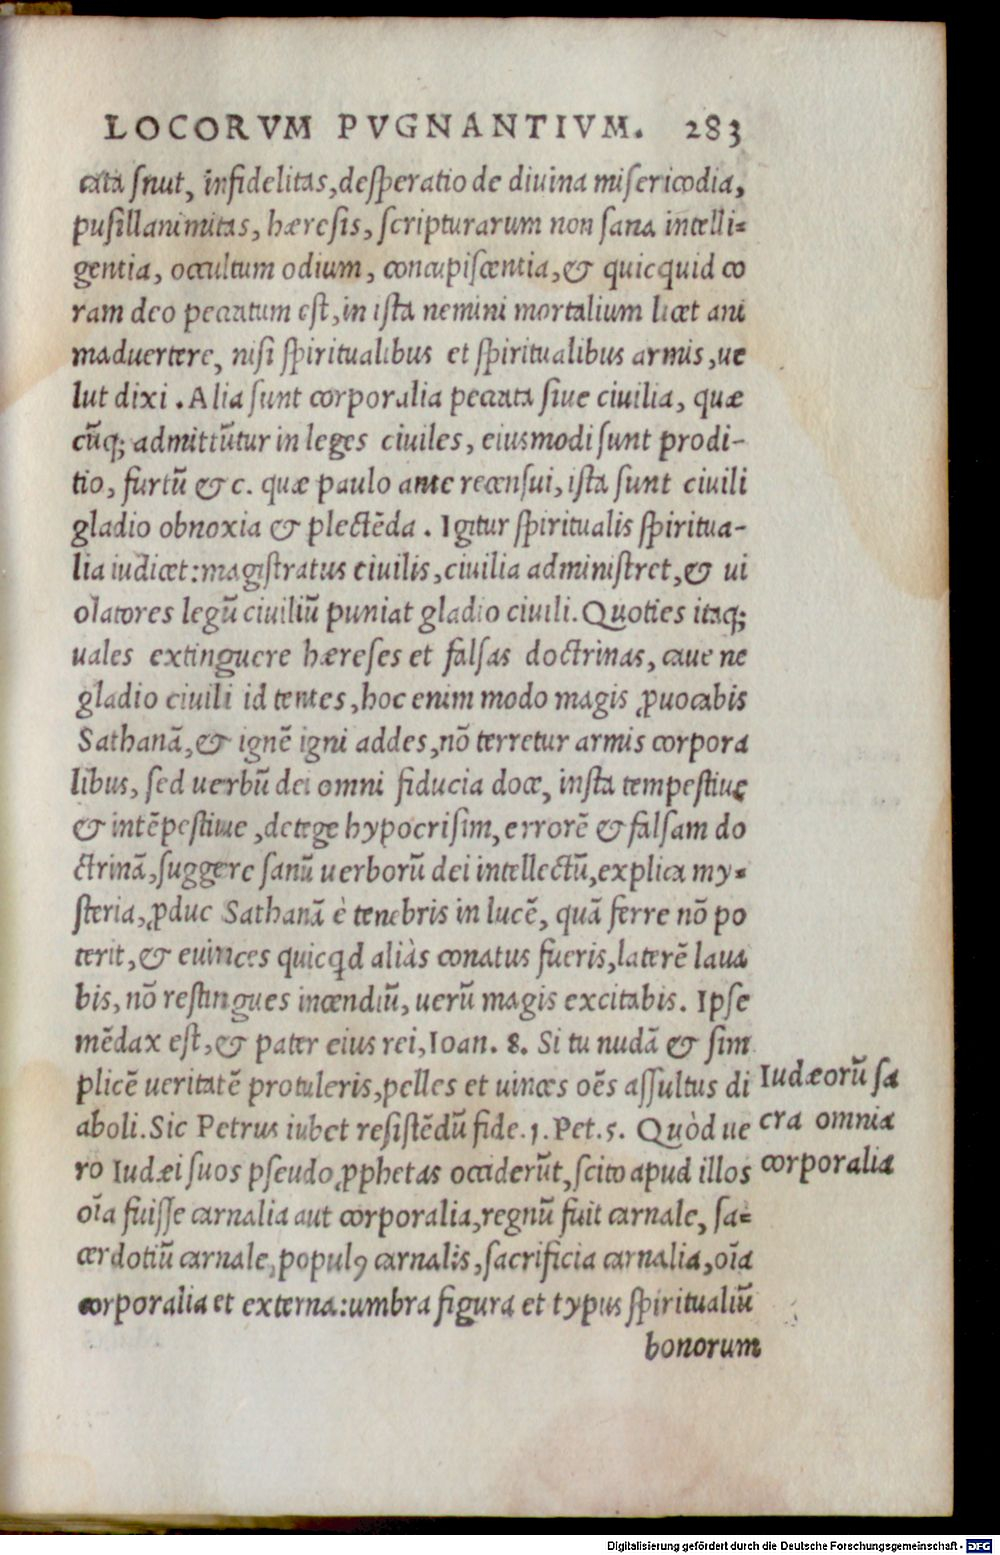 LOCORVM PVGNANTIVM. 283
cata snut, infidelitas, desperatio de diuina misericodia,
pusillanimitas, hæresis, scripturarum non sana intelli=
gentia, occultum odium, concupiscentia, & quicquid co
ram deo peccatum est, in ista nemini mortalium licet ani
maduertere, nisi spiritualibus et spiritualibus armis, ue
lut dixi. Alia sunt corporalia peccata siue ciuilia, quæ
cūq; admittūtur in leges ciuiles, eiusmodi sunt prodi-
tio, furtū & c. quæ paulo ante recensui, ista sunt ciuili
gladio obnoxia & plectēda. Igitur spiritualis spiritua-
lia iudicet: magistratus ciuilis, ciuilia administret, & ui
olatores legū ciuiliū puniat gladio ciuili. Quoties itaq;
uales extinguere hæreses et falsas doctrinas, caue ne
gladio ciuili id tentes, hoc enim modo magis ꝓuocabis
Sathanā, & ignē igni addes, nō terretur armis corpora
libus, sed uerbū dei omni fiducia doce, insta tempestiue
& intēpestiue, detege hypocrisim, errorē & falsam do
ctrinā, suggere sanū uerborū dei intellectū, explica my=
steria, ꝓduc Sathanā è tenebris in lucē, quā ferre nō po
terit, & euinces quicqd aliàs conatus fueris, laterē laua
bis, nō restingues incendiū, uerū magis excitabis. Ipse
mēdax est, & pater eius rei, Ioan. 8. Si tu nudā & sim
plicē ueritatē protuleris, pelles et uinces oēs assultus di
aboli. Sic Petrus iubet resistēdū fide. 1. Pet. 5. Quòd ue
ro Iudæi suos pseudoꝓphetas occiderūt, scito apud illos
oīa fuisse carnalia aut corporalia, regnū fuit carnale, sa=
cerdotiū carnale, populꝰ carnalis, sacrificia carnalia, oīa
corporalia et externa: umbra figura et typus spiritualiū
bonorum
Iudæorū sa
cra omnia
corporalia
Digitalisierung gefördert durch die Deutsche Forschungsgemeinschaft - DFG